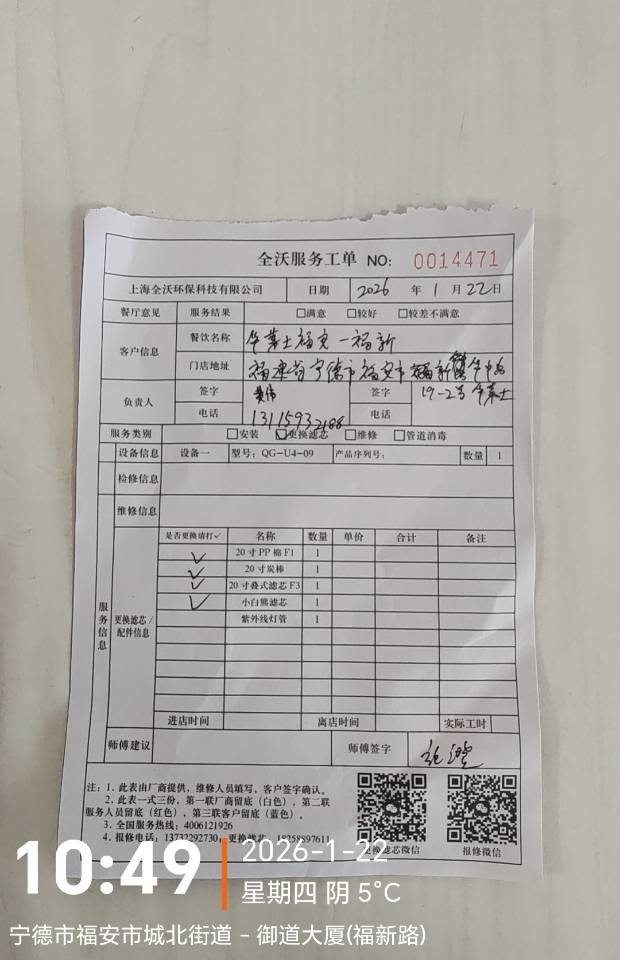 全沃服务工单 NO: 0014471
上海全沃环保科技有限公司 日期 2026 年 1 月 22 日
餐厅意见 服务结果 □满意 □较好 □较差不满意
客户信息 餐饮名称 华莱士福安一福新
门店地址 福建省宁德市福安市 福新 中路
19-2号 华莱士
负责人 签字 签字
电话 13115932188 电话
服务类别 □安装 ☑更换滤芯 □维修 □管道消毒
设备信息 设备一 型号: QG-U4-09 产品序列号: 数量 1
检修信息
维修信息
服务信息 更换滤芯/配件信息
是否更换请打✓ 名称 数量 单价 合计 备注
✓ 20寸PP棉F1 1
✓ 20寸炭棒 1
✓ 20寸叠式滤芯F3 1
✓ 小白熊滤芯 1
紫外线灯管 1
进店时间 离店时间 实际工时
师傅建议 师傅签字
注: 1. 此表由厂商提供，维修人员填写，客户签字确认。
2. 此表一式三份，第一联厂商留底（白色），第二联
服务人员留底（红色），第三联客户留底（蓝色）。
3. 全国服务热线: 4006121926
4. 报修电话: 13732292730 更换滤芯 18258897611
更换滤芯微信 报修微信
10:49
2026-1-22
星期四 阴 5°C
宁德市福安市城北街道 - 御道大厦(福新路)